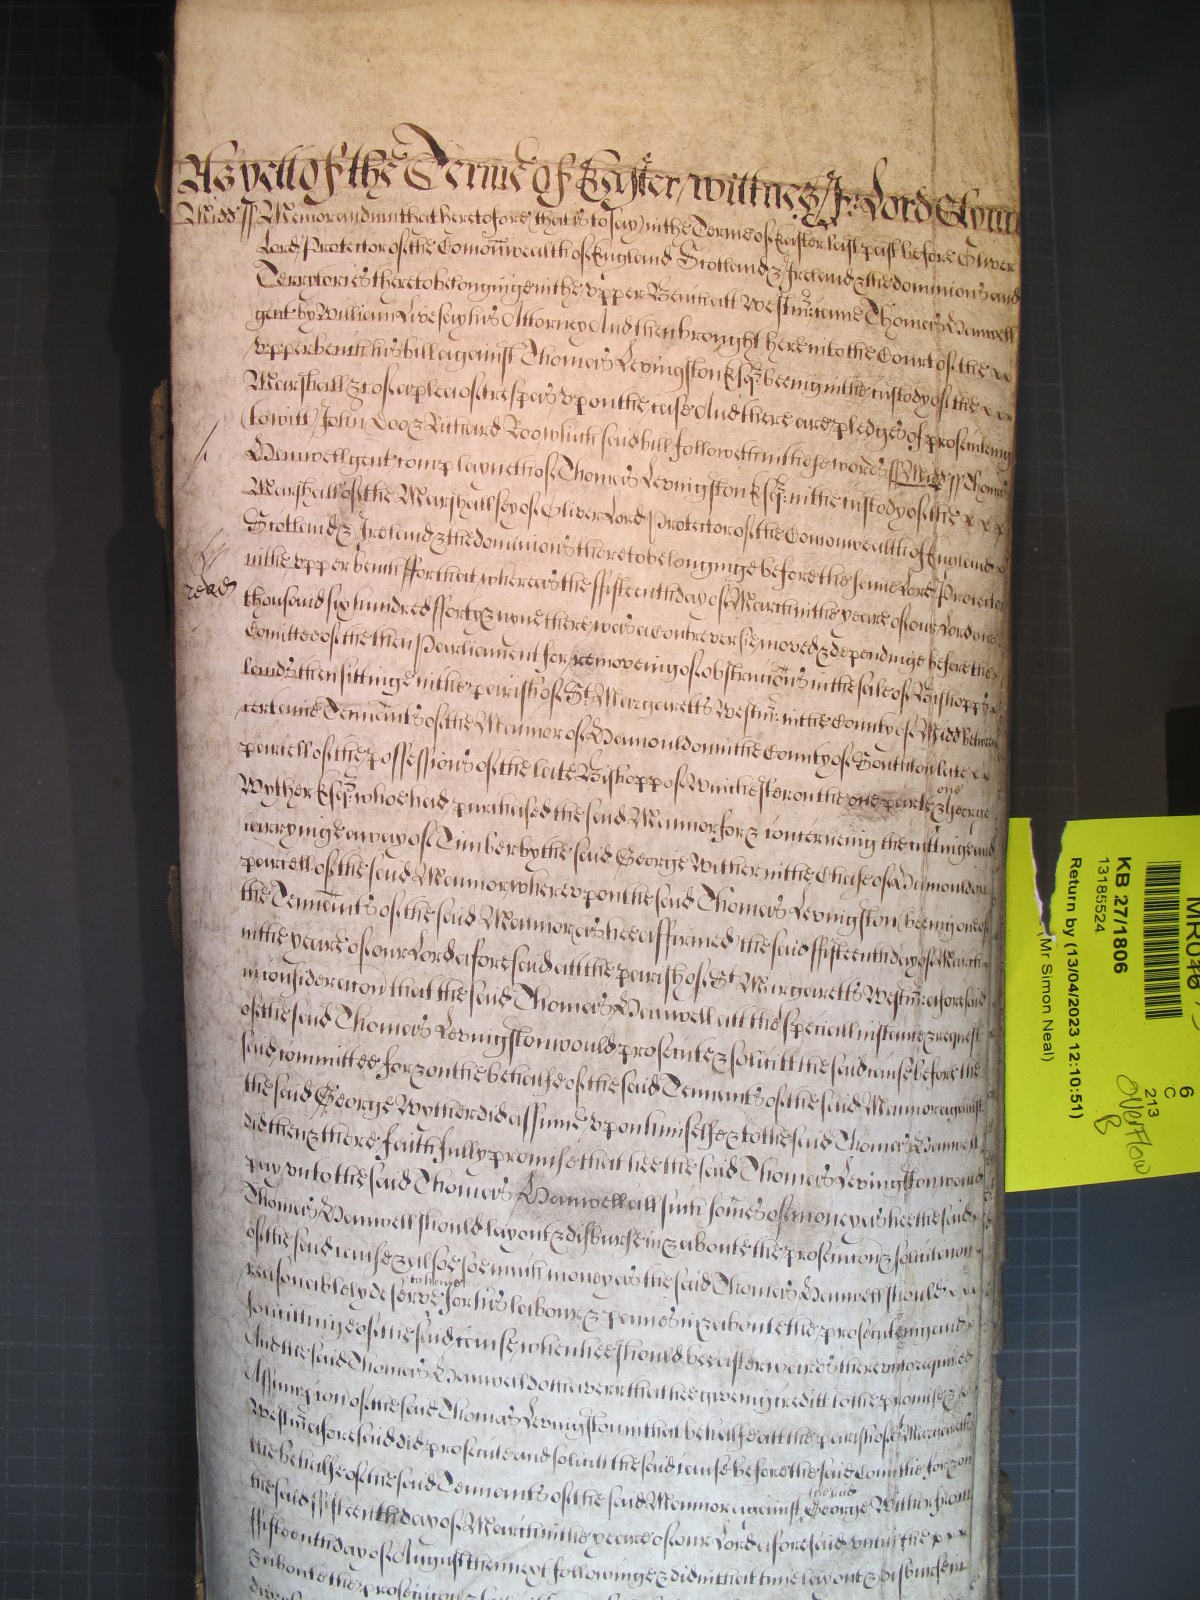 As yett of the Terme of Easter, wittnes, Jr: Lord Glynn
Midd ss Memorandum that heretofore that is to say in the Terme of Easter last past before Oliver
Lord Protector of the Comonwealth of England Scotland & Ireland & the dominions and
Terrytories thereto belonginge in the vpper Bench att Westmr: came Thomas Hanwell
gent by William Livesay his Attorney And then brought here into the Court of the x x
vpper bench his bill against Thomas Levingston Esqr: beeing in the custody of the x x x
Marshall &c of a plea of trespas vpon the case And there are pledges of prosecuteing
(to witt) John Doo & Richard Roo which said bill followeth in these words ss Midd ss Thomas
Hanwell gent complayneth of Thomas Levingston Esqr: in the custody of the x x x
Marshall of the Marshallsey of Oliver Lord Protector of the Comonwealth of England x
Scotland & Ireland & the dominions thereto belonginge before the same Lord Protector
in the vpper bench ffor that, whereas the ffifteenth day of March in the yeare of our Lord one
thousand six hundred fforty & nyne there, was a Controversie, moved & dependinge before the
Comittee of the then Parliament for, removeing of obstructions in the sale of Bishopps
lands then sittinge in the parish of St. Margaretts Westmr: in the County of Midd betweene
certaine Tennants of the Mannor of Hamouldon in the County of Southton late x x
parcell of the, possessions of the late Bishopp of Winchester on the one parte & one George
Wyther Esqr: whoe had purchased the said Mannor for & concerneing the cuttinge and
carryinge away of Timber by the said George Wither in the Chase of Hamouldon
parcell of the said Mannor where vpon the said Thomas Levingston (beeing one of
the Tennants of the said Mannor as hee affirmed) the said ffifteenth day of March
in the yeare of our Lord aforesaid att the parish of St Margaretts Westmr: aforesaid
in consideracon that the said Thomas Hanwell att the speciall instance & request
of the said Thomas Levingston would prosecute & sollicitt the said cause before the
said committee for & on the behalfe of the said Tennants of the said Mannor against
the said George Wyther did assume vpon himselfe & to the said Thomas Hanwell
did then & there faithfully promise that hee the said Thomas Levingston would
pay vnto the said Thomas Hanwell all such somes of money as hee the said
Thomas Hanwell should lay out & disburse in & aboute the prosecucon & solicitacon
of the said cause & alsoe soe much money as the said Thomas Hanwell should x x
reasonablely deserve to have for his labour & paines in & aboute the, prosecuteing and
soliciting of the said cause, when hee should bee afterwards thereunto required
And the said Thomas Hanwell doth averr that hee giveing creditt to the promise &
Assumpcion of the said Thomas Levingston in that behalfe att the parish of St Margaretts
Westmr aforesaid did prosecute and solicitt the said cause before the said Comittee for & on
the behalfe of the said Tennants of the said Mannor against the said George Wither from
the said ffifteenth day of March in the yeare of our Lord aforesaid vntill the x x x
ffifteenth day of August then next followinge & did in that time lay out & disburse in
& aboute the prosecucon &
read
KB 27/1806
13185524
Return by (13/04/2023 12:10:51)
(Mr Simon Neal)
6
C
213
Overflow
B